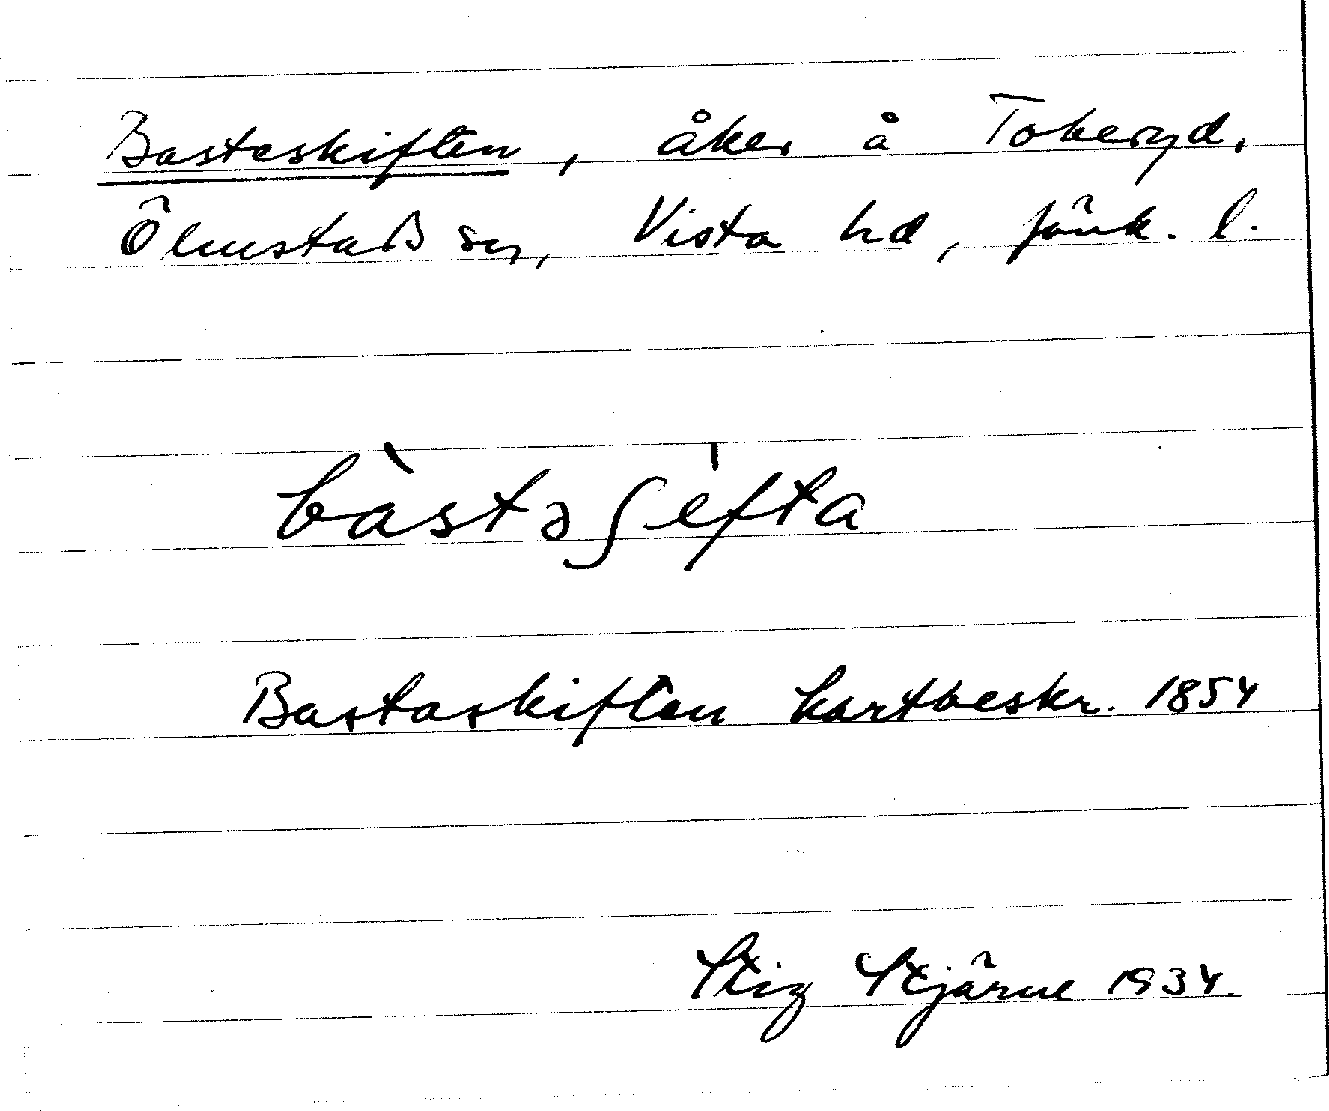 Bastaskiften, åker å Tokeryd,
Ölmstads sn, Vista hd, Jönk. l.
bàstəʃèfta
Bastaskiften kartbeskr. 1854
Stig Stjärne 1934.